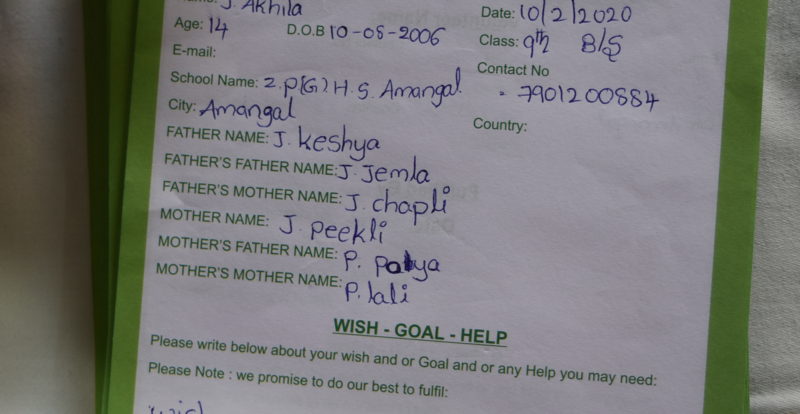 Name: J. Akhila Date: 10/2/2020
Age: 14 D.O.B 10-05-2006 Class: 9th B/S
E-mail: Contact No
School Name: Z.P(G).H.S. Amangal - 7901200884
City: Amangal Country:
FATHER NAME: J. keshya
FATHER'S FATHER NAME: J. Jemla
FATHER'S MOTHER NAME: J. chapli
MOTHER NAME: J. peekli
MOTHER'S FATHER NAME: P.
MOTHER'S MOTHER NAME: P. lali
WISH - GOAL - HELP
Please write below about your wish and or Goal and or any Help you may need:
Please Note : we promise to do our best to fulfil: